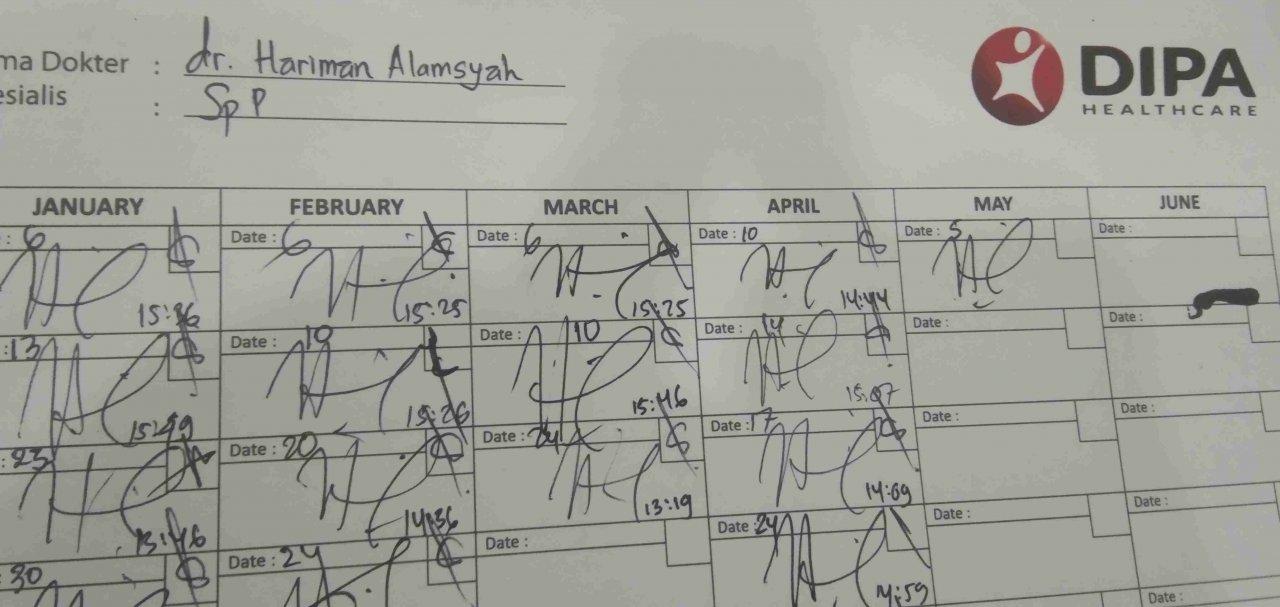 ma Dokter : dr. Hariman Alamsyah
esialis : Sp P
DIPA
HEALTHCARE
JANUARY FEBRUARY MARCH APRIL MAY JUNE
: 6 Date : 6 Date : 6 Date : 10 Date : 5 Date :
15:36 15:25 15:25 14:44
: 13 Date : 10 Date : 10 Date : 14 Date : Date :
15:49 15:26 15:46 15:07
: 23 Date : 20 Date : 24 Date : 17 Date : Date :
13:46 14:36 13:19 14:09
: 30 Date : 24 Date : Date : 24 Date : Date :
14:59
Date :